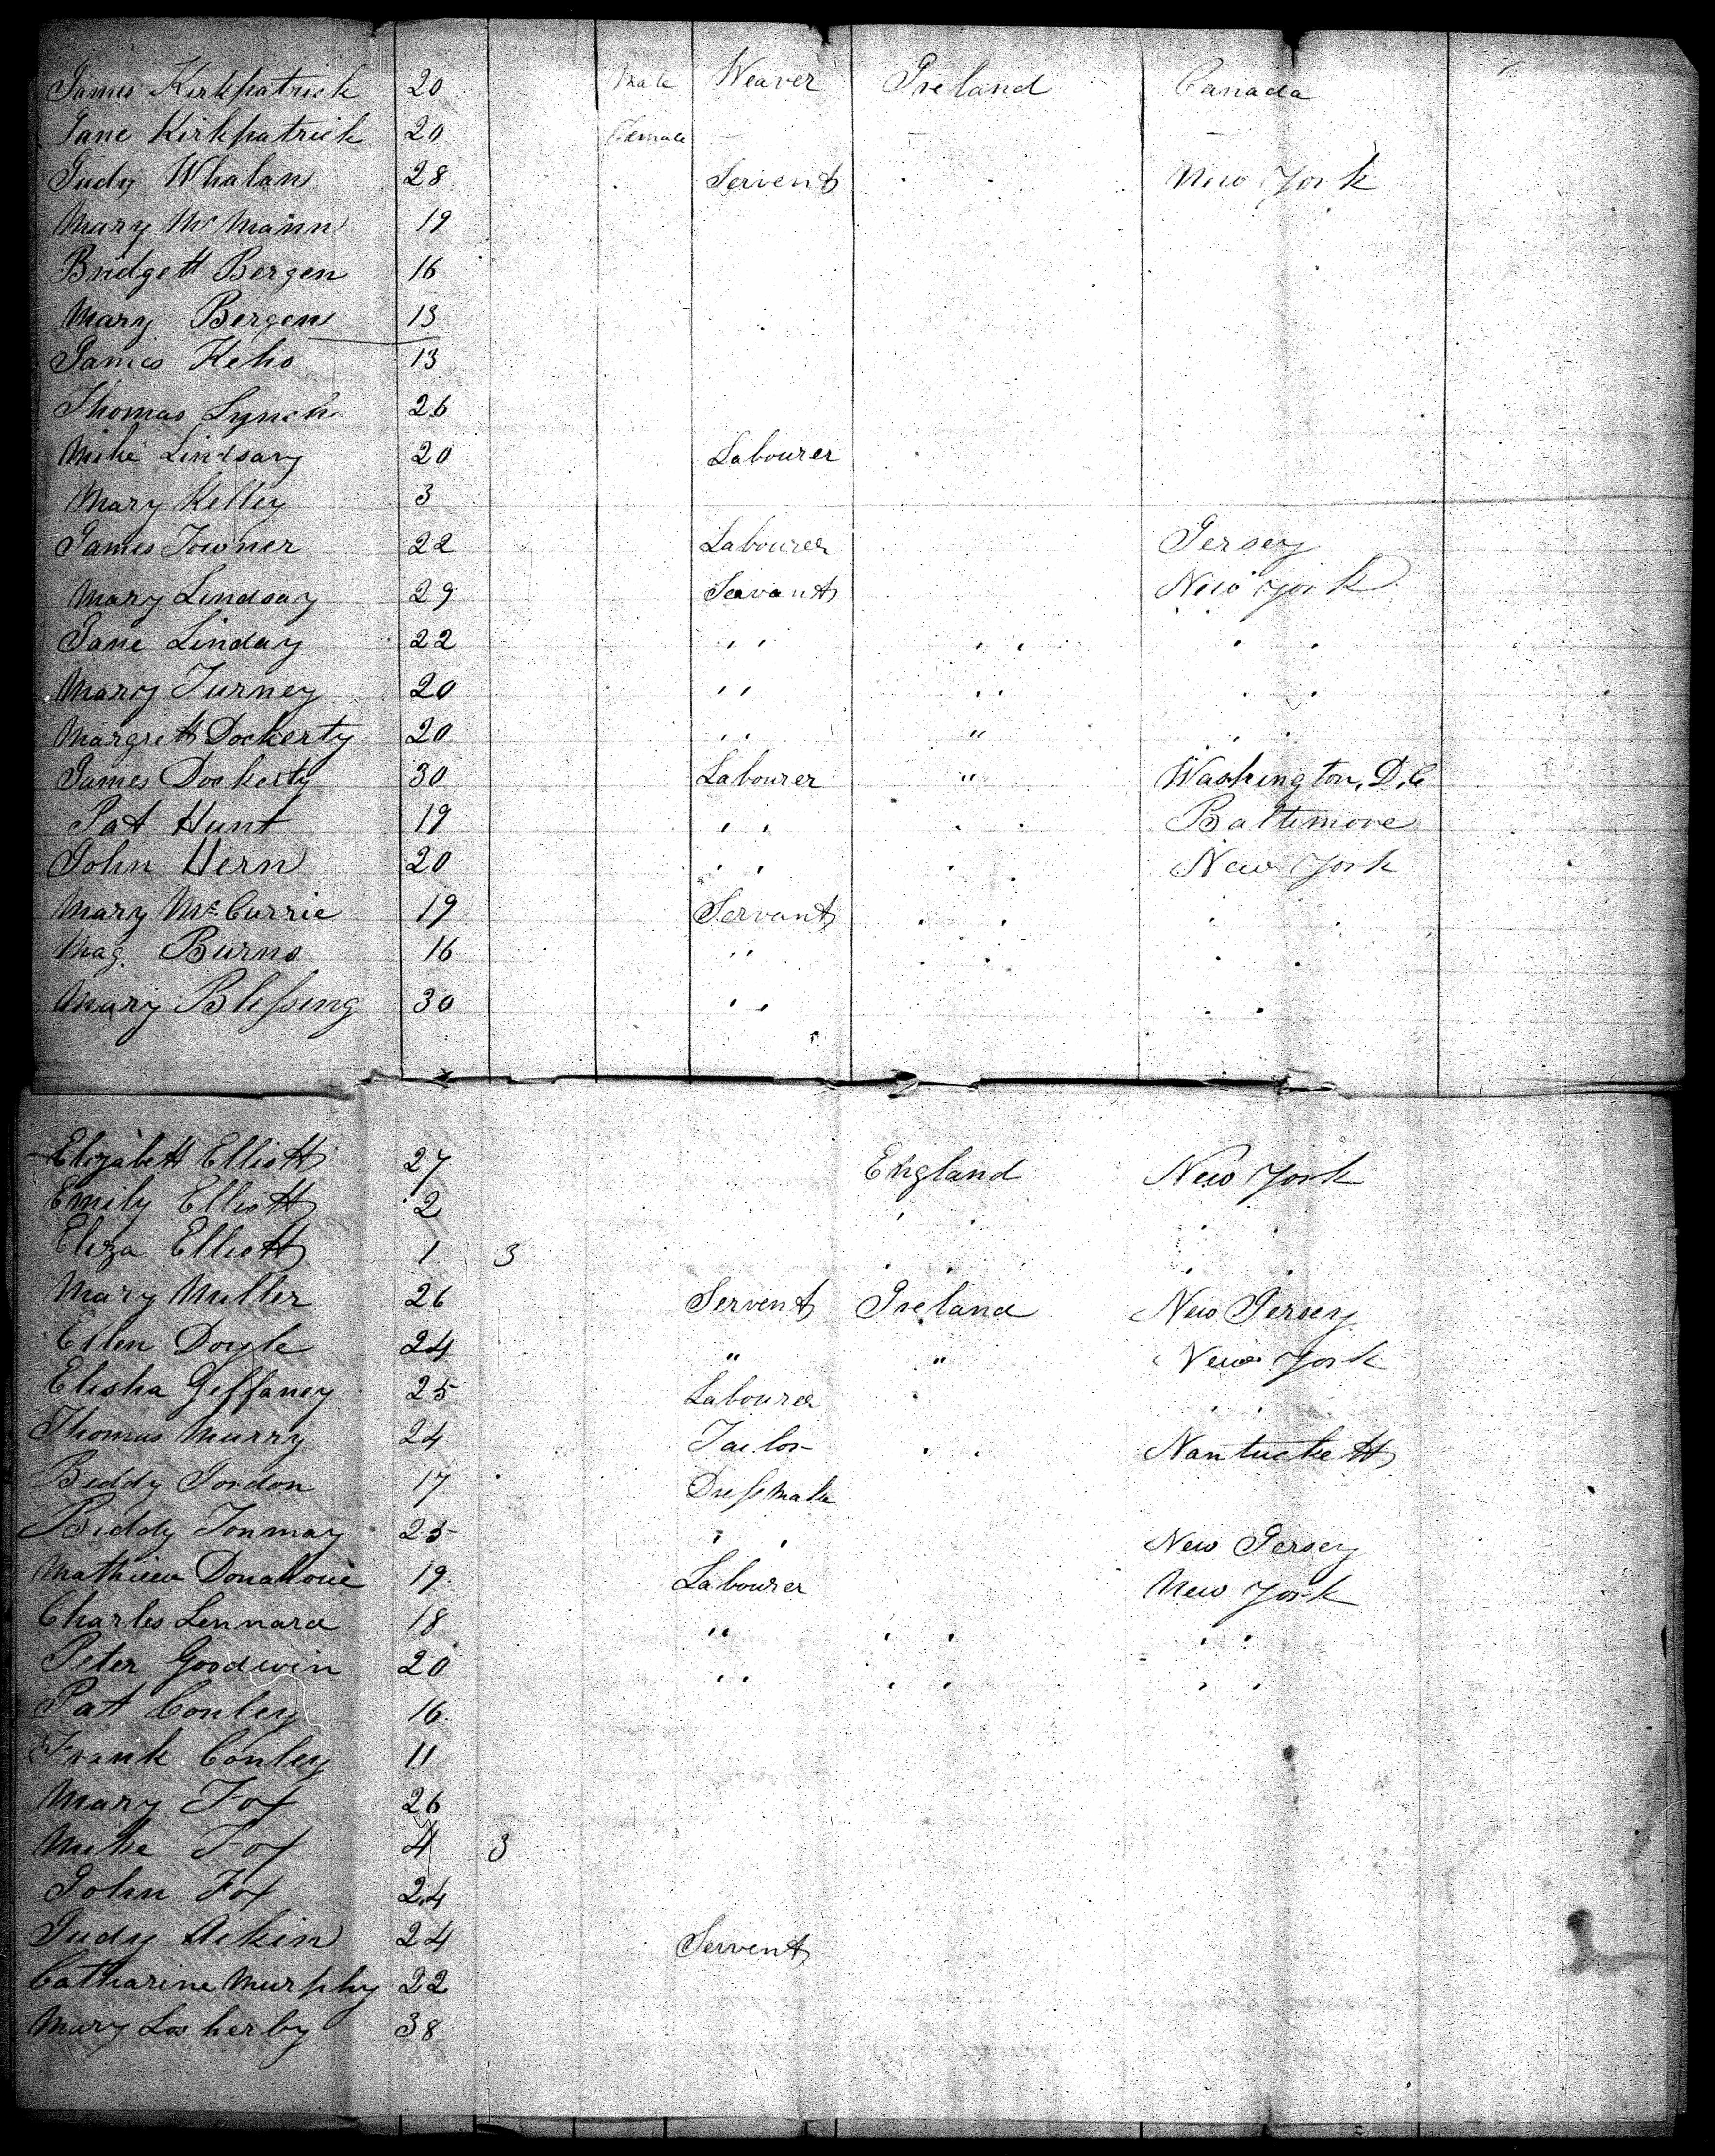 James Kirkpatrick 20 Male Weaver Ireland Canada
Jane Kirkpatrick 20 Female - - -
Judy Whalan 28 Servent " New York
Mary McMann 19
Bridgett Bergen 16
Mary Bergen 13
James Keho 13
Thomas Lynch 26
Mike Lindsay 20 Labourer
Mary Kelley 3
James Towner 22 Labourer Jersey
Mary Lindsay 29 Servant New York
Jane Linday 22 " " "
Mary Turney 20 " " "
Margrett Dockerty 20 " " "
James Dockerty 30 Labourer " Washington, D.C
Pat Hunt 19 " " Baltimore
John Hern 20 " " New York
Mary Mc. Currie 19 Servant " "
Mag. Burns 16 " " "
Mary Blessing 30 " "
Elizabett Elliott 27 England New York
Emily Elliott 2 " "
Eliza Elliott 1 3 " "
Mary Muller 26 Servent Ireland New Jersey
Ellen Doyle 24 " " New York
Elisha Geffaney 25 Labourer " "
Thomas Murry 24 Tailor " Nantuckett
Biddy Jordon 17 Dressmaker
Biddy Tonmay 25 " New Jersey
Mathiew Donahoue 19 Labourer New York
Charles Lennard 18 " " "
Peter Goodwin 20 " " "
Pat Conley 16
Frank Conley 11
Mary Fox 26
Mike Fox 4 3
John Fox 24
Judy Aikin 24 Servent
Catharine Murphy 22
Mary 38